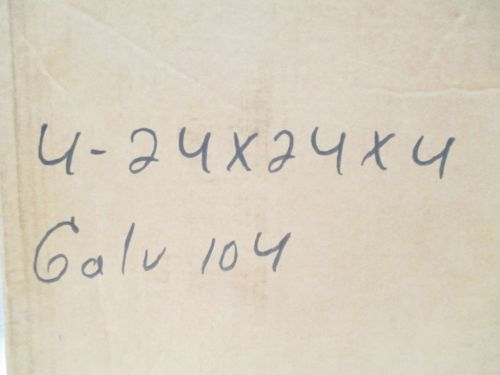 4-24x24x4
Galv 104